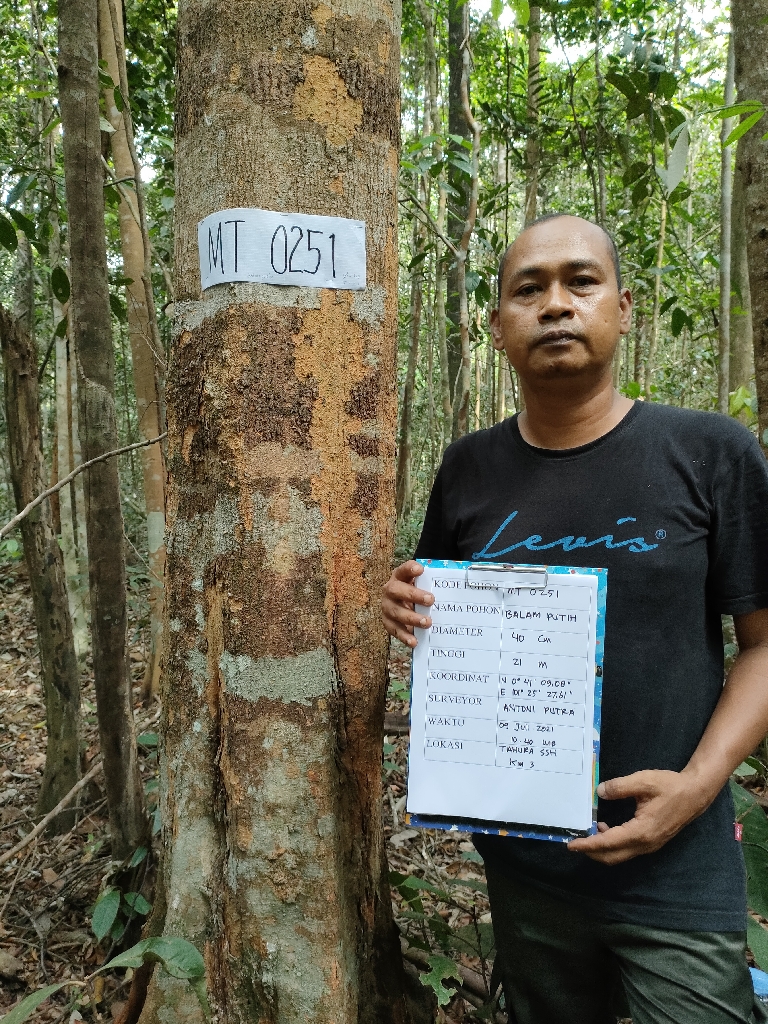 MT 0251
Levi's®
KODE POHON MT 0251
NAMA POHON BALAM PUTIH
DIAMETER 40 Cm
TINGGI 21 M
KOORDINAT N 0° 41' 09.08"
E 101° 25' 27.61"
SURVEYOR ANTONI PUTRA
WAKTU 09 JULI 2021
10.40 WIB
LOKASI TAHURA SSH
KM 3